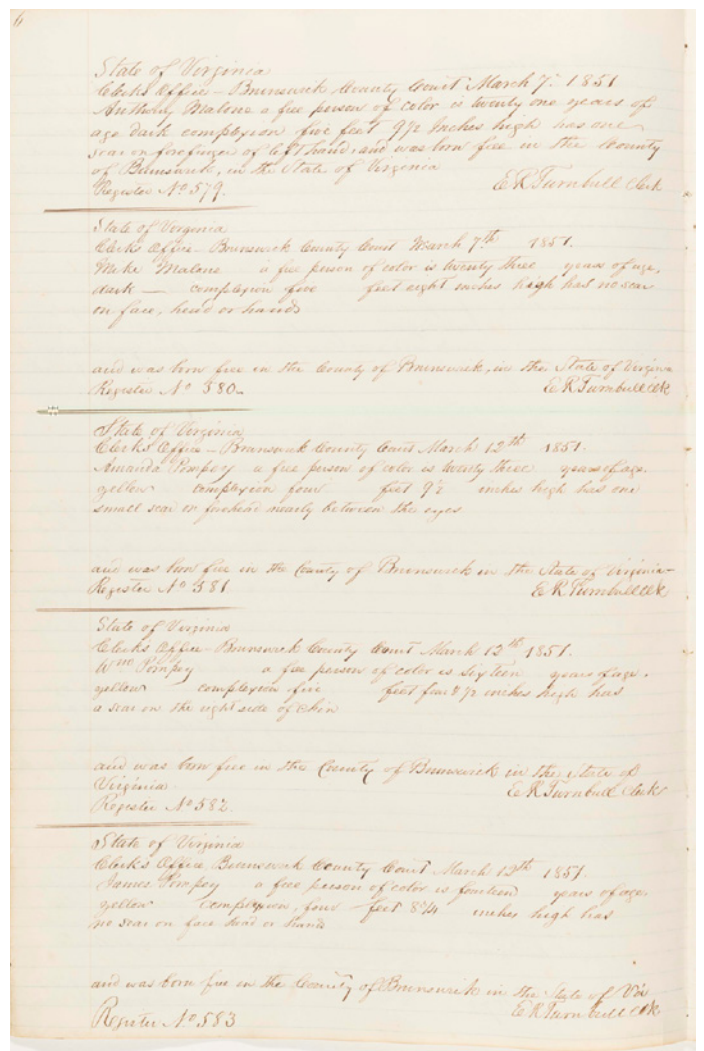 6
State of Virginia
Clerks Office - Brunswick County Court March 7th 1851
Anthony Malone a free person of color is twenty one years of
age dark complexion five feet 9½ Inches high has one
scar on forefinger of left hand, and was born free in the County
of Brunswick, in the State of Virginia
Register No 579. E R Turnbull Clerk
State of Virginia
Clerks Office - Brunswick County Court March 7th 1851.
Mike Malone a free person of color is twenty three years of age,
dark — complexion five feet eight inches high has no scar
on face, head or hands
and was born free in the County of Brunswick, in the State of Virginia
Register No 580. E R Turnbull Clk
State of Virginia
Clerk's Office - Brunswick County Court March 12th 1851.
Amanda Pompey a free person of color is twenty three years of age.
yellow complexion four feet 9½ inches high has one
small scar in forehead nearly between the eyes
and was born free in the County of Brunswick in the State of Virginia -
Register No 581 E R Turnbull Clk
State of Virginia
Clerks Office - Brunswick County Court March 12th 1851.
Wm Pompey a free person of color is Sixteen years of age.
yellow complexion five feet four & ½ inches high has
a scar on the right side of Chin
and was born free in the County of Brunswick in the State of
Virginia E R Turnbull Clerk
Register No 582.
State of Virginia
Clerks Office, Brunswick County Court March 12th 1851.
James Pompey a free person of color is fourteen years of age.
yellow complexion, four feet 8¾ inches high has
no scar on face head or hands
and was born free in the County of Brunswick in the State of Va
E R Turnbull Clk
Register No. 583